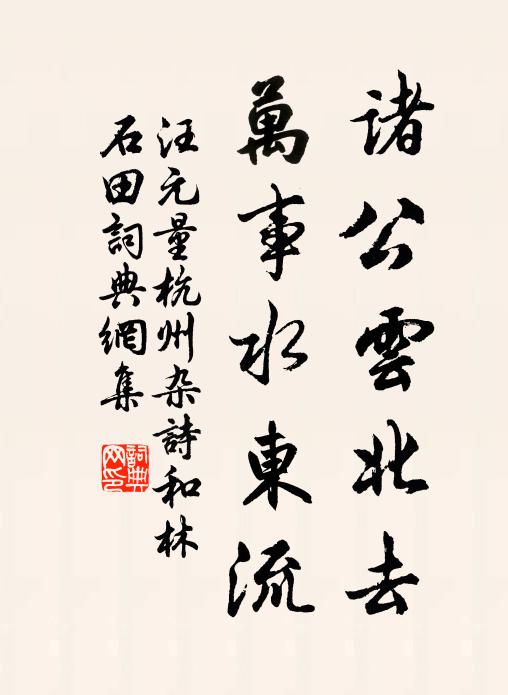 諸公雲北去
萬事水東流
汪元量杭州杂詩和林
石田詞典網集
詞典网印